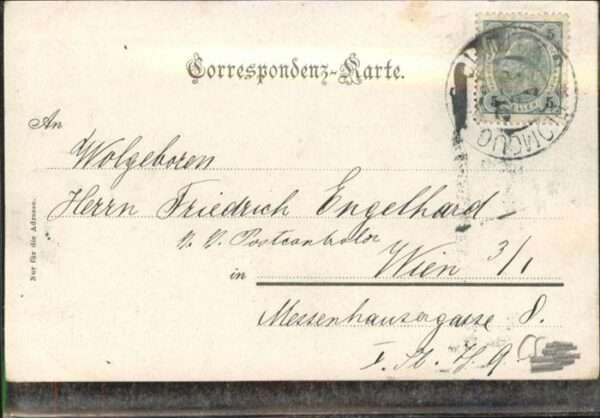 Correspondenz-Karte.
5
5 5
An
Wolgeboren
Herrn Friedrich Engelhard
Postcontrolor
in Wien 3/1
Nur für die Adresse.
Messenhausergasse 8.